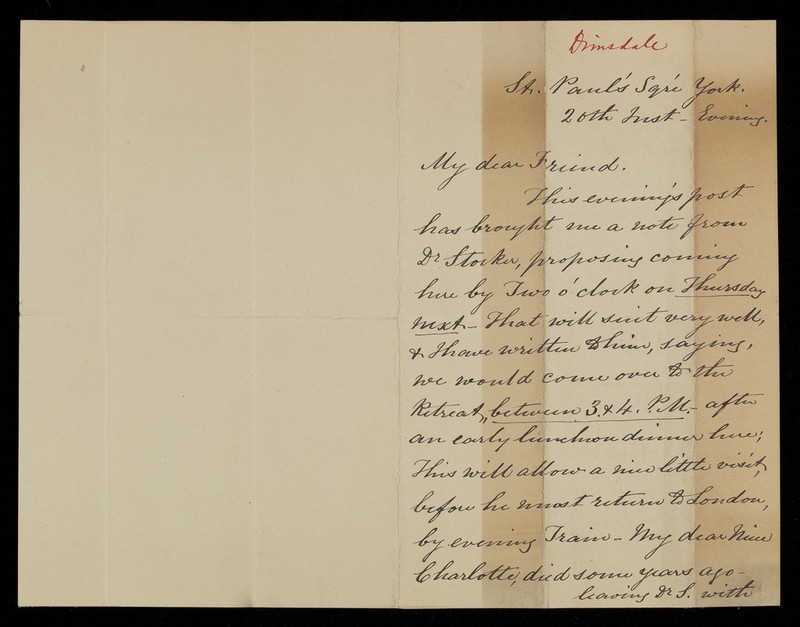 Dimsdale
St. Paul's Sqre York.
20th Inst - Evening.
My dear Friend.
This evening's post
has brought me a note from
Dr Stocker, proposing coming
here by Two o'clock on Thursday
next - That will suit very well,
& I have written to him, saying,
we would come over to the
Retreat, between 3. & 4. P.M. - after
an early luncheon dinner here;
This will allow a nice little visit,
before he must return to London,
by evening Train - My dear Niece
Charlotte, died some years ago -
leaving Dr. S. with